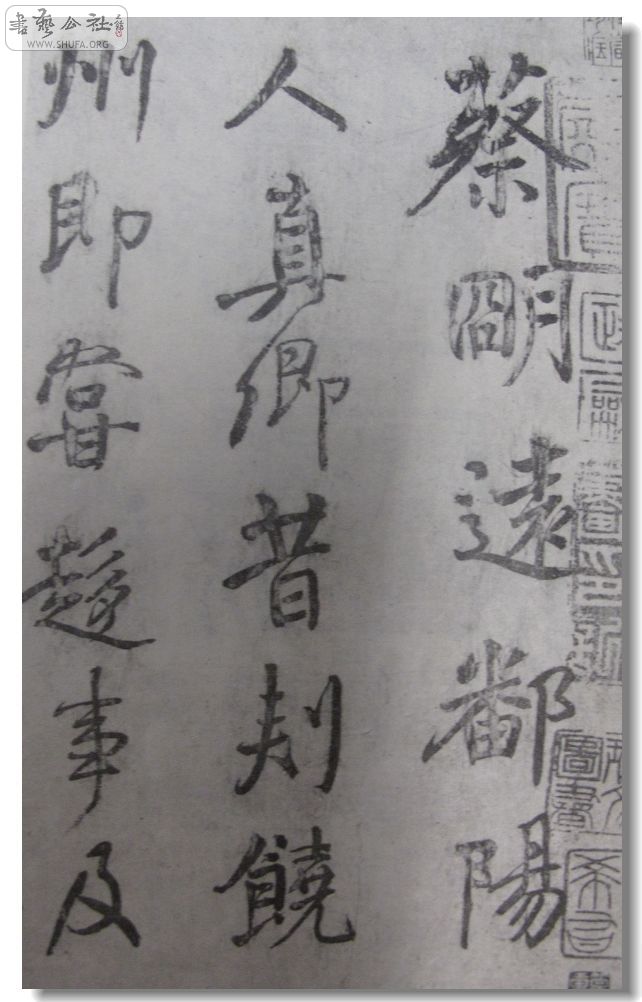 蔡明遠鄱陽
人真卿昔刺饒
州即嘗趨事及
書藝公社
WWW.SHUFA.ORG